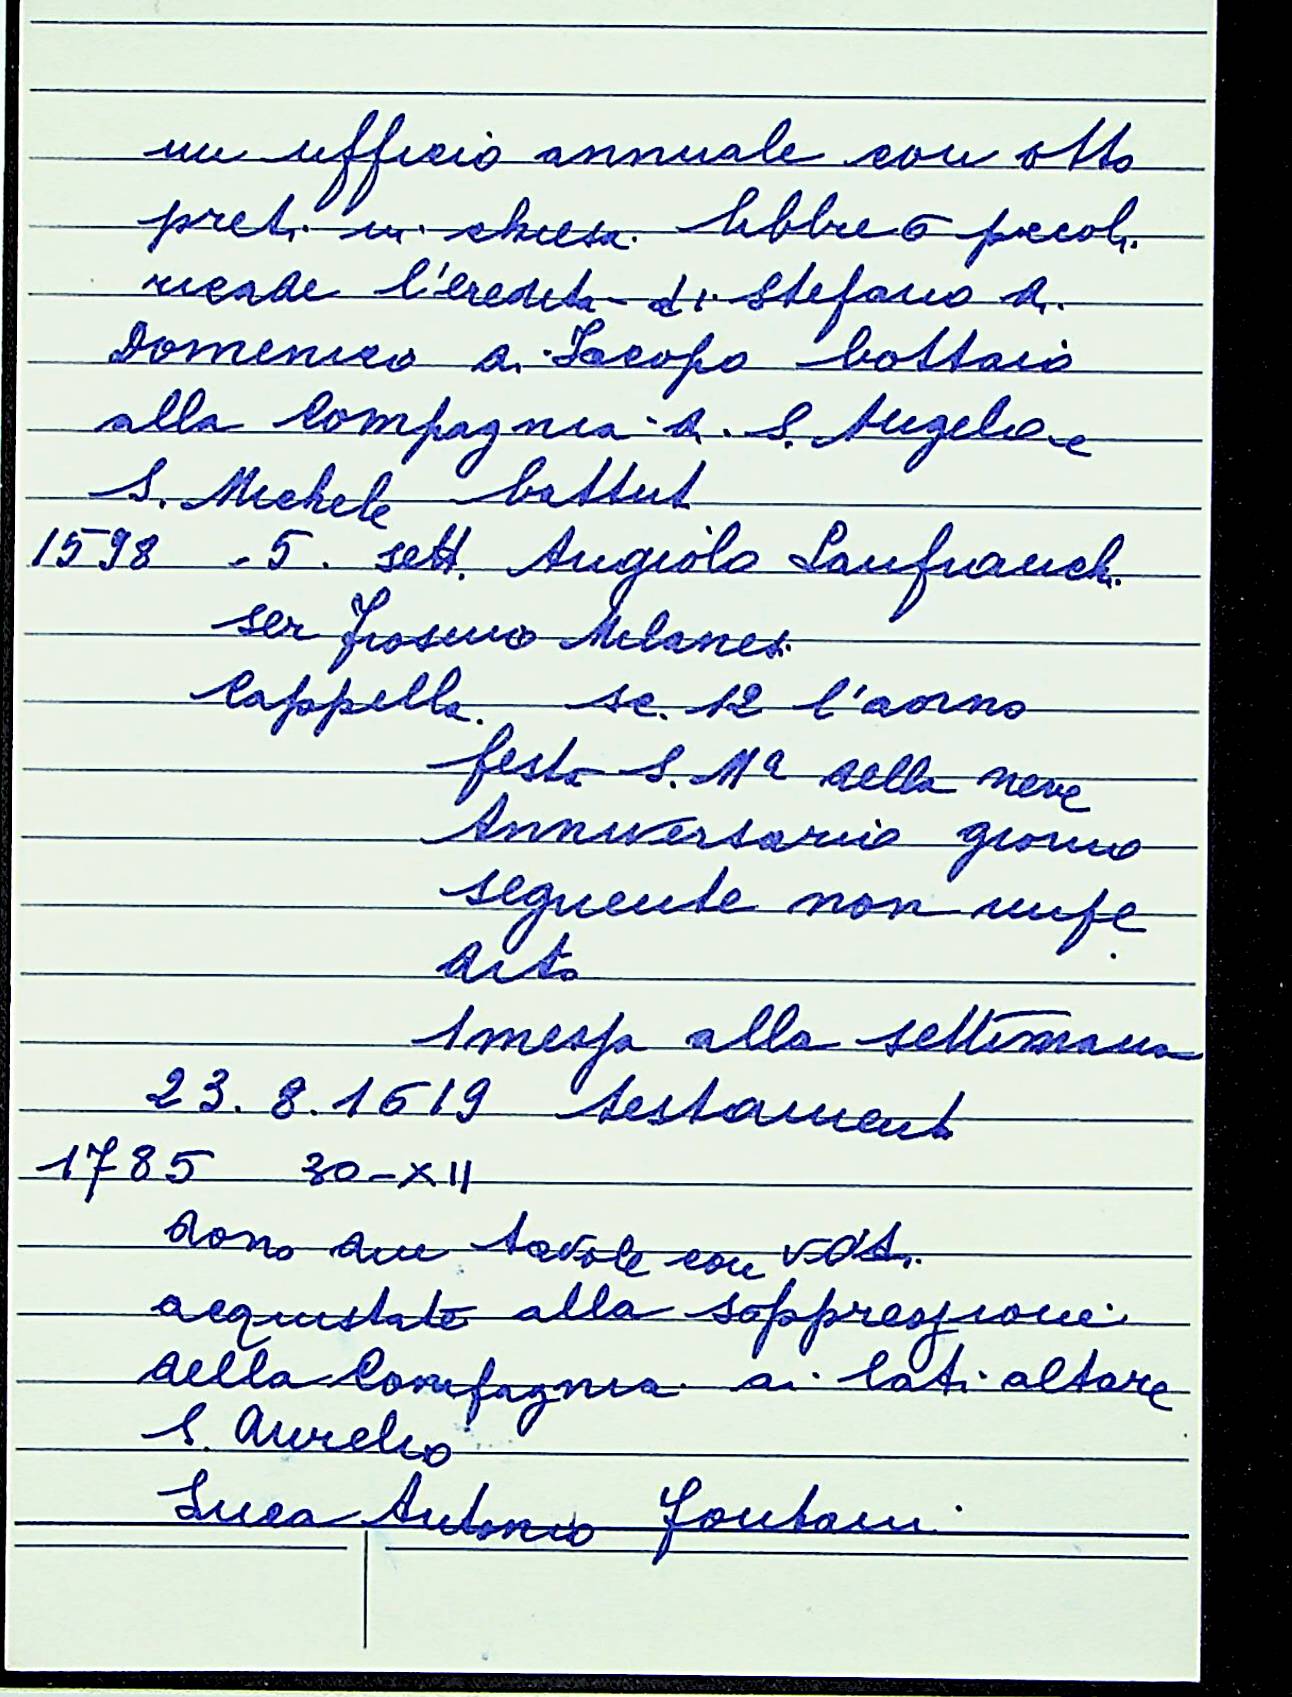 un ufficio annuale con otto
preti in chiesa. libbre 6 piccoli.
ricade l'eredità di Stefano di
Domenico di Iacopo bottaio
alla Compagnia di S. Angelo e
S. Michele battuti
1598 - 5. sett. Angiolo Lanfranchi
ser Frosino Milanesi
Cappella. sc. 12 l'anno
festa S. Mª della neve
Anniversario giorno
seguente non impe
dito.
1 messa alla settimana
23. 8. 1619 testamento
1785 30-XII
dono due tavole con voti.
acquistate alla soppressione
della Compagnia ai lati altare
S. Aurelio
Luca Antonio Fontani